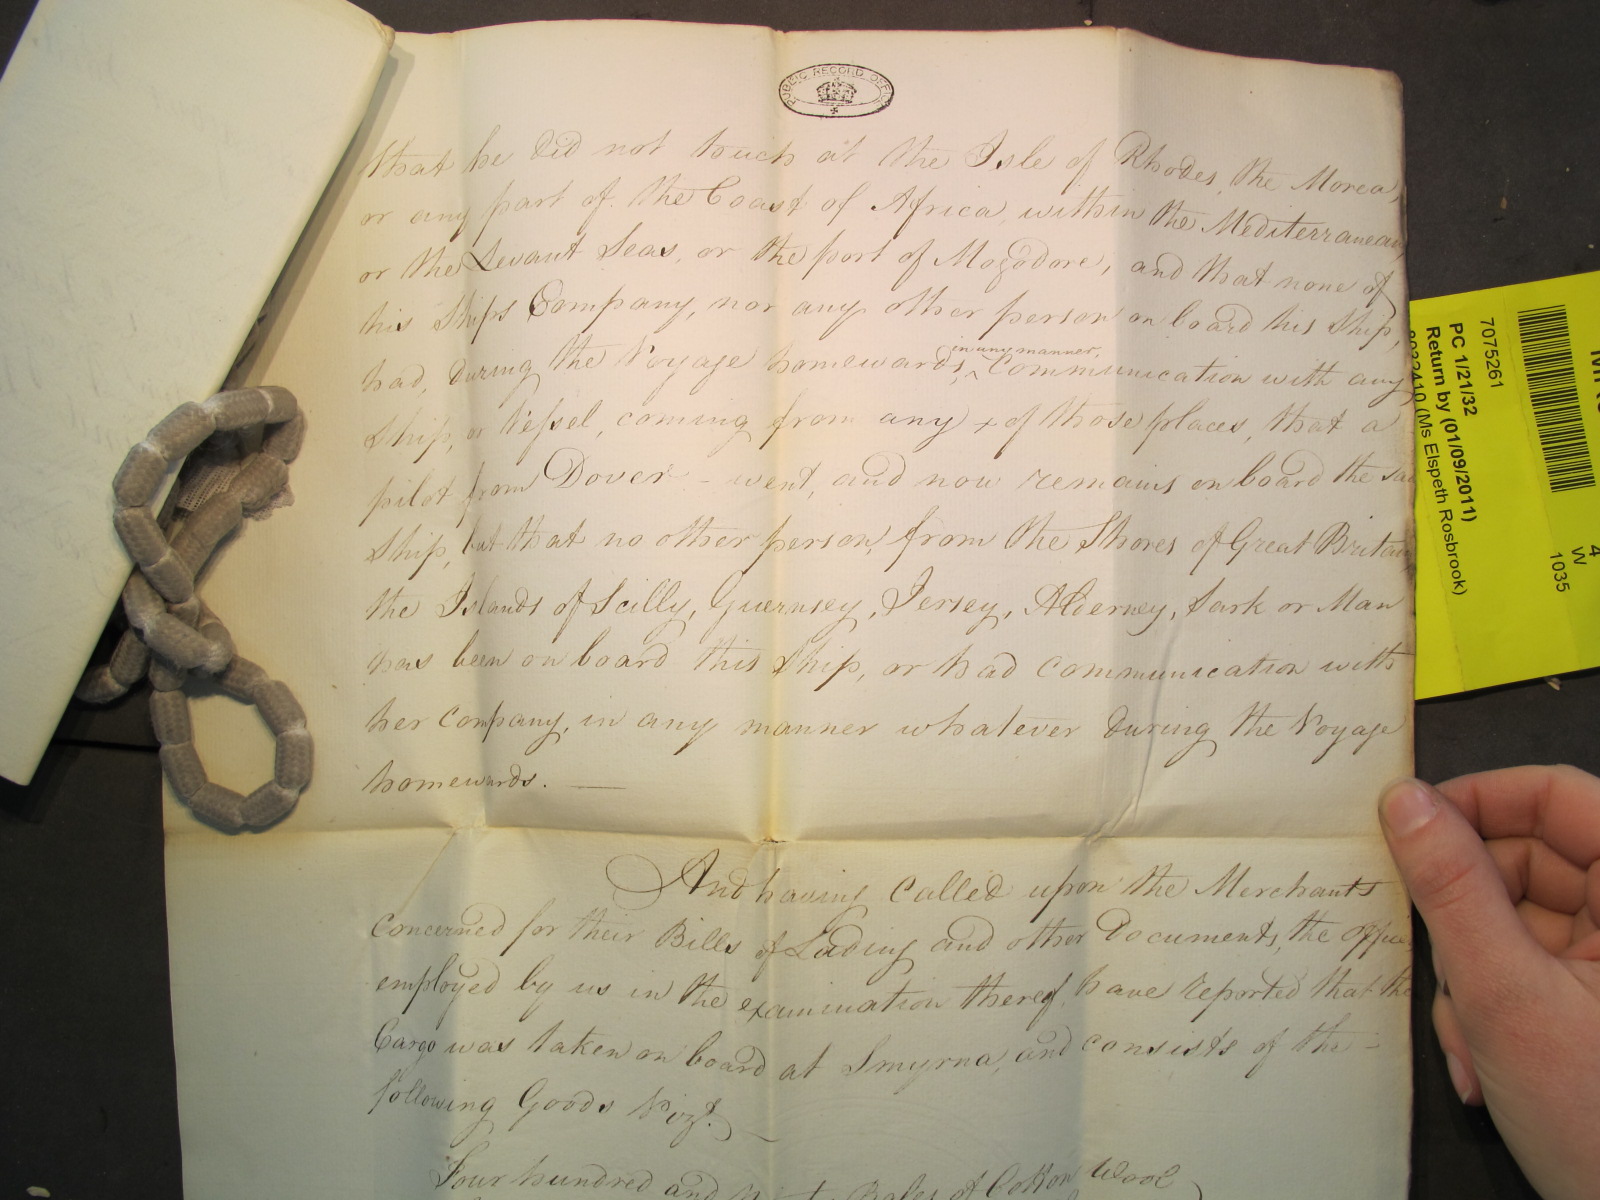 PUBLIC RECORD OFFICE
that he did not touch at the Isle of Rhodes, the Morea,
or any part of the Coast of Africa, within the Mediterranean
or the Levant Seas, or the port of Mogodore, and that none of
his Ships Company, nor any other person on board his Ship,
in any manner,
had, during the Voyage homewards, ^ Communication with any
Ship, or Veſsel, coming from any x of those places, that a
pilot from Dover - went, and now remains on board the
Ship, but that no other person, from the Shores of Great Britain
the Islands of Scilly, Guernsey, Jersey, Alderney, Sark or Man
has been on board this Ship, or had communication with
her company, in any manner whatever during the Voyage
homewards. —
And having called upon the Merchants
concerned for their Bills of Lading and other Documents, the
employed by us in the examination thereof, have reported that the
Cargo was taken on board at Smyrna, and consists of the -
following Goods Vizt.
Four hundred and Bales of Cotton Wool
7075261
PC 1/21/32
Return by (01/09/2011)
(Ms Elspeth Rosbrook)
4
W
1035